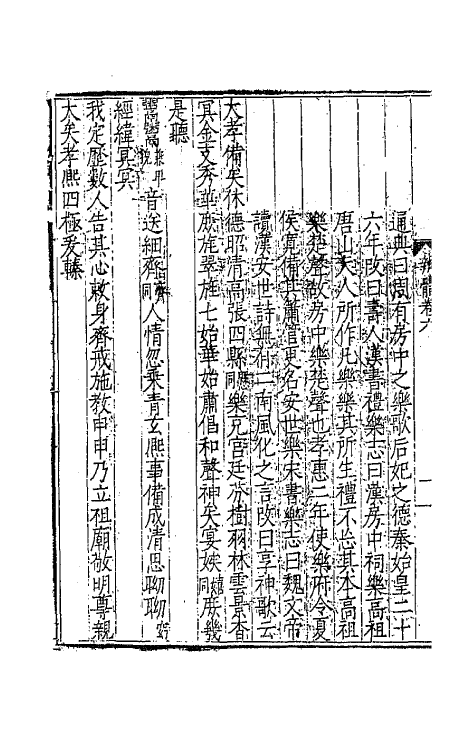 通典曰周有房中之樂歌后妃之德秦始皇二十
六年改曰壽人漢書禮樂志曰漢房中祠樂高祖
唐山夫人所作凡樂樂其所生禮不忘其本高祖
樂楚聲故房中樂楚聲也孝惠二年使樂府令夏
侯寬備其簫管更名安世樂宋書樂志曰魏文帝
讀漢安世詩無有二南風化之言改曰享神歌云
大孝備矣休德昭清高張四縣同懸樂充宮廷芬樹羽林雲景杳
冥金支秀華庶旄翠旌七始華始肅倡和聲神矣宴娭同嬉庶幾
是聽
鬻鬻音送細齊同齋人情忽乘青玄熙事備成清思眑眑
經緯冥冥
我定歷數人告其心敕身齊戒施教申申乃立祖廟敬明尊親
大矣孝熙四極爰轃